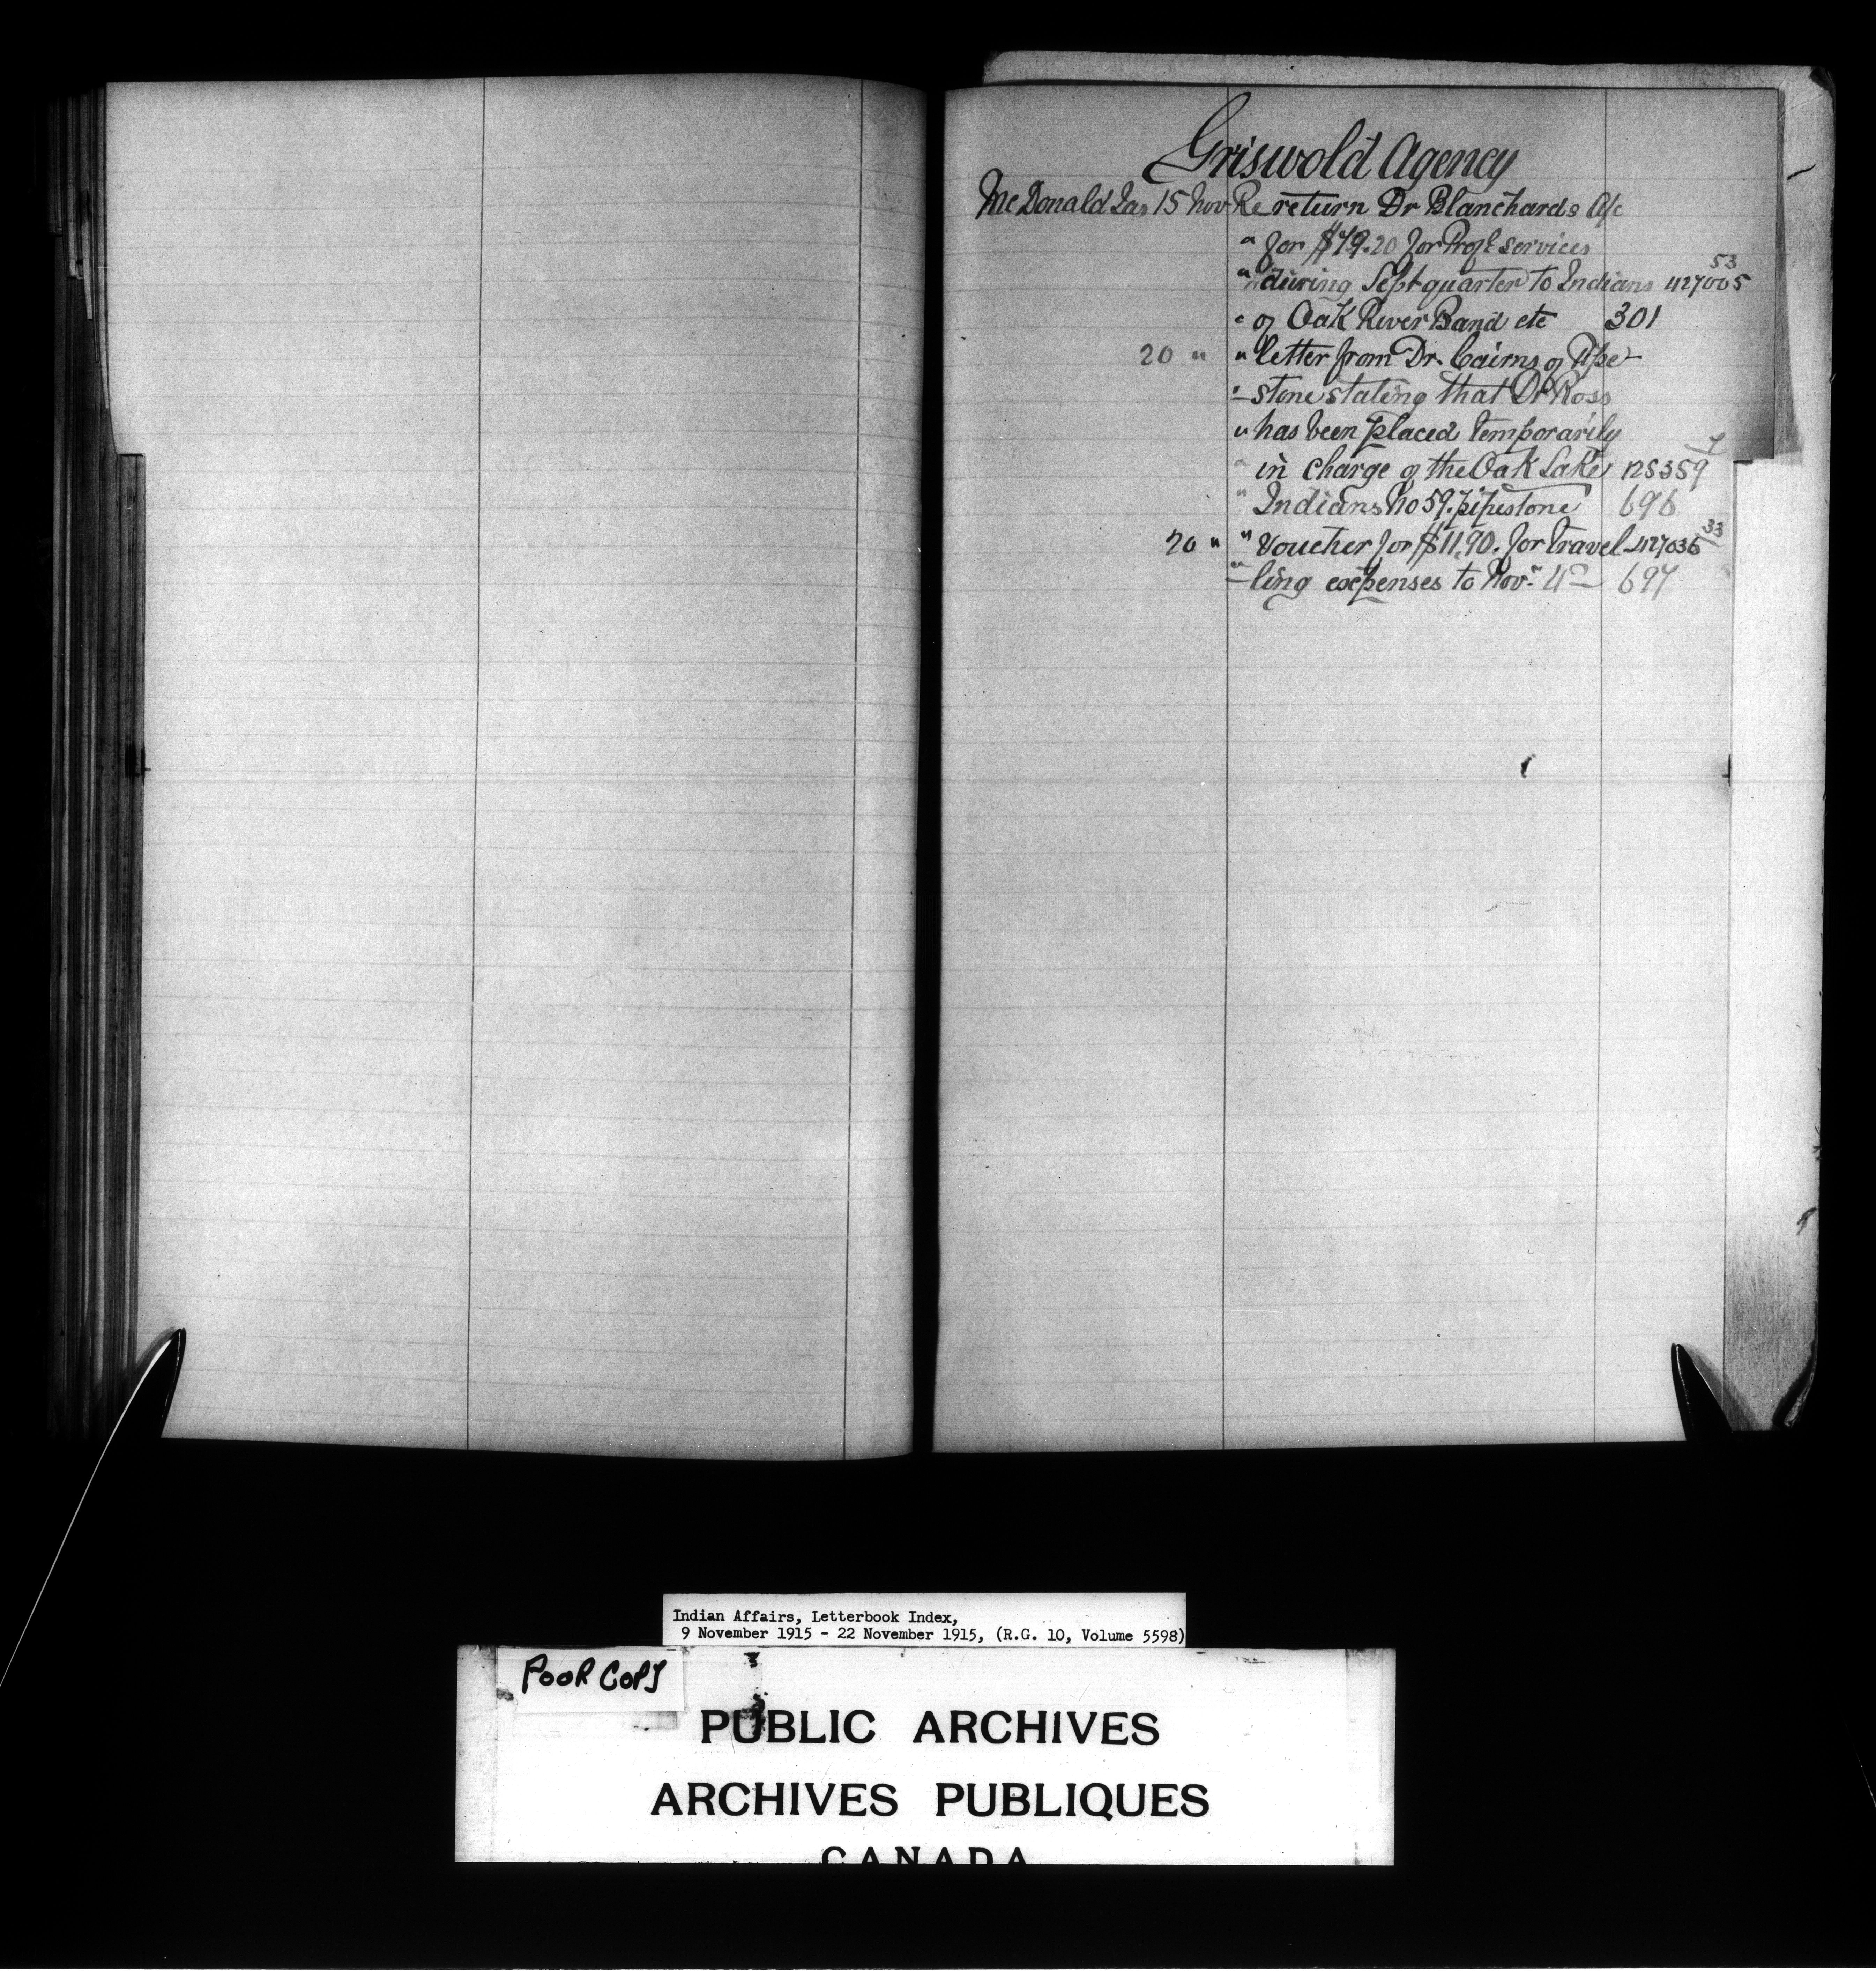 Griswold Agency
McDonald Jas 15 Nov Re return Dr Blanchards A/c
" for $79.20 for Profl services
" during Sept quarter to Indians 427005 53
" of Oak River Band etc 301
20 " " letter from Dr. Cairns of Pipe-
" -stone stating that Dr Ross
" has been placed temporarily
" in charge of the Oak Lake 125359 7
" Indians No 59. pipestone 696
20 " " Voucher for $11.90. for travel- 427036 33
" -ling expenses to Novr 4th 697
Indian Affairs, Letterbook Index,
9 November 1915 - 22 November 1915, (R.G. 10, Volume 5598)
POOR COPY
PUBLIC ARCHIVES
ARCHIVES PUBLIQUES
CANADA